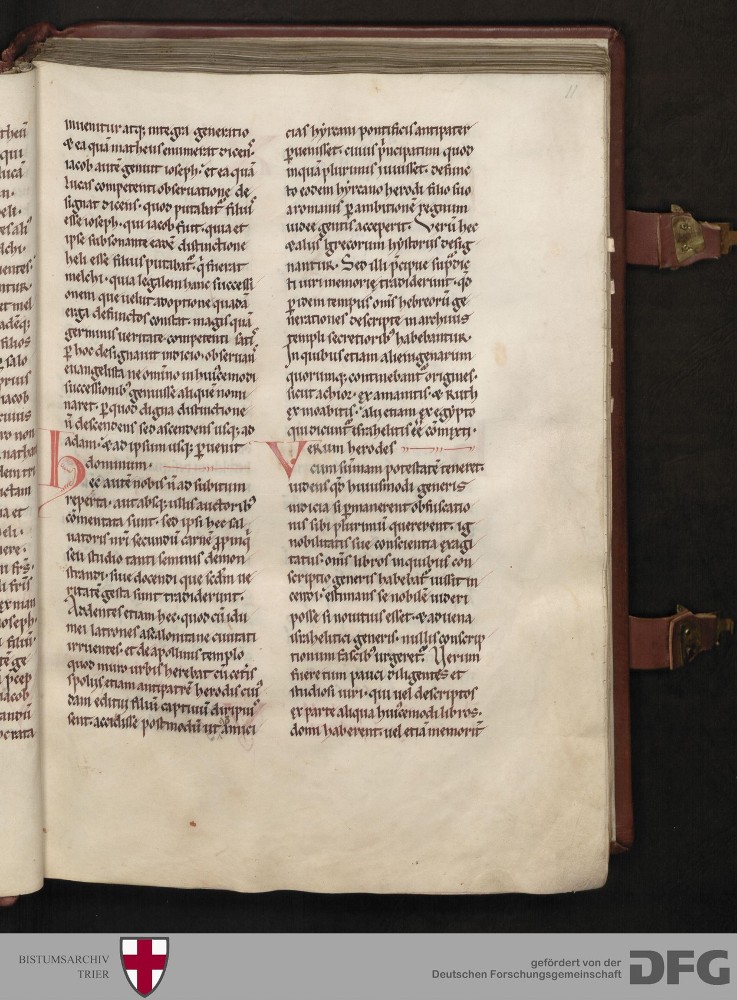 11
inuenitur atq; integra generatio
& ea quā matheus enumerat dicens.
iacob autē genuit ioseph. et ea quā
lucas competenti obseruatione de
signat dicens. quod putabat᷑ filius
esse ioseph. qui iacob fuit. quia et
ipse subsonante eadē distinctione
heli esse filius putabat᷑. q̇ fuerat
melchi. quia legalem hanc successi
onem que uelut adoptione quadā
erga defunctos constat. magis quā
germinis ueritate competenti satis
ꝑ hoc designauit indicio. obseruans
euangelista ne omīno in huiꝰcemodi
successionibꝰ genuisse aliquē nomi
naret. ꝑ quod digna distinctione
ñ descendens sed ascendens usq; ad
adam. & ad ipsum usq; ꝑuenit
dominum.
Hec autē nobis ñ ad subitum
reperta. aut absq; ullis auctoribꝰ
cōmentata sunt. sed ipsi hec sal
uatoris nr̄i secundū carnē ꝓpinqui
seu studio tanti seminis demon
strandi. siue docendi que scdm̄ ue
ritatē gesta sunt tradiderunt.
Addentes etiam hec. quod cū idu
mei latrones ascalonitane ciuitati
irruentes. et de apollinis templo
quod muro urbis herebat cū cet̄is
spoliis etiam antipatrē herodis cuiꝰ
dam editui filiū captiuū diripuis
sent. accidisse postmodū ut amici
cias hyrcani pontificis antipater
ꝑuenisset. cuius p̄ncipatum quod
inquā plurimis iuuisset. defunc
to eodem hyrcano herodi filio suo
a romanis ꝑ ambitionē regnum
iudee gentis acceperit. Verū hec
& aliis grecorum hystoriis desig
nantur. Sed illi p̄cipue sup̄dic
ti uiri memorie tradiderunt. qd̄
ꝑ idem tempus om̄s hebreorū ge
nerationes descripte in archiuis
templi secretioribꝰ habebantur.
In quibus etiam alienigenarum
quorumq; continebant᷑ origines.
sicut achior. ex amanitis. & Ruth
ex moabitis. alii etiam ex egypto
qui dicunt᷑ israhelitis eē com̄xti.
Verum herodes
cum sūmam potestatē teneret.
uidens qd̄ huiusmodi generis
indicia si ꝑmanerent obfuscatio
nis sibi plurimū quererent. ig
nobilitatis sue conscientia exagi
tatus. om̄s libros in quibus con
scriptio generis habebat᷑ iussit in
cendi. estimans se nobilē uideri
posse si nouitius esset. & aduena
israhelitici generis. nullis conscrip
tionum fascibꝰ urgeret᷑. Uerum
fuere tum pauci diligentes et
studiosi uiri. qui uel descriptos
ex parte aliqua huiꝰcemodi libros.
domi haberent. uel etiā memorit᷑
BISTUMSARCHIV
TRIER
gefördert von der
Deutschen Forschungsgemeinschaft
DFG